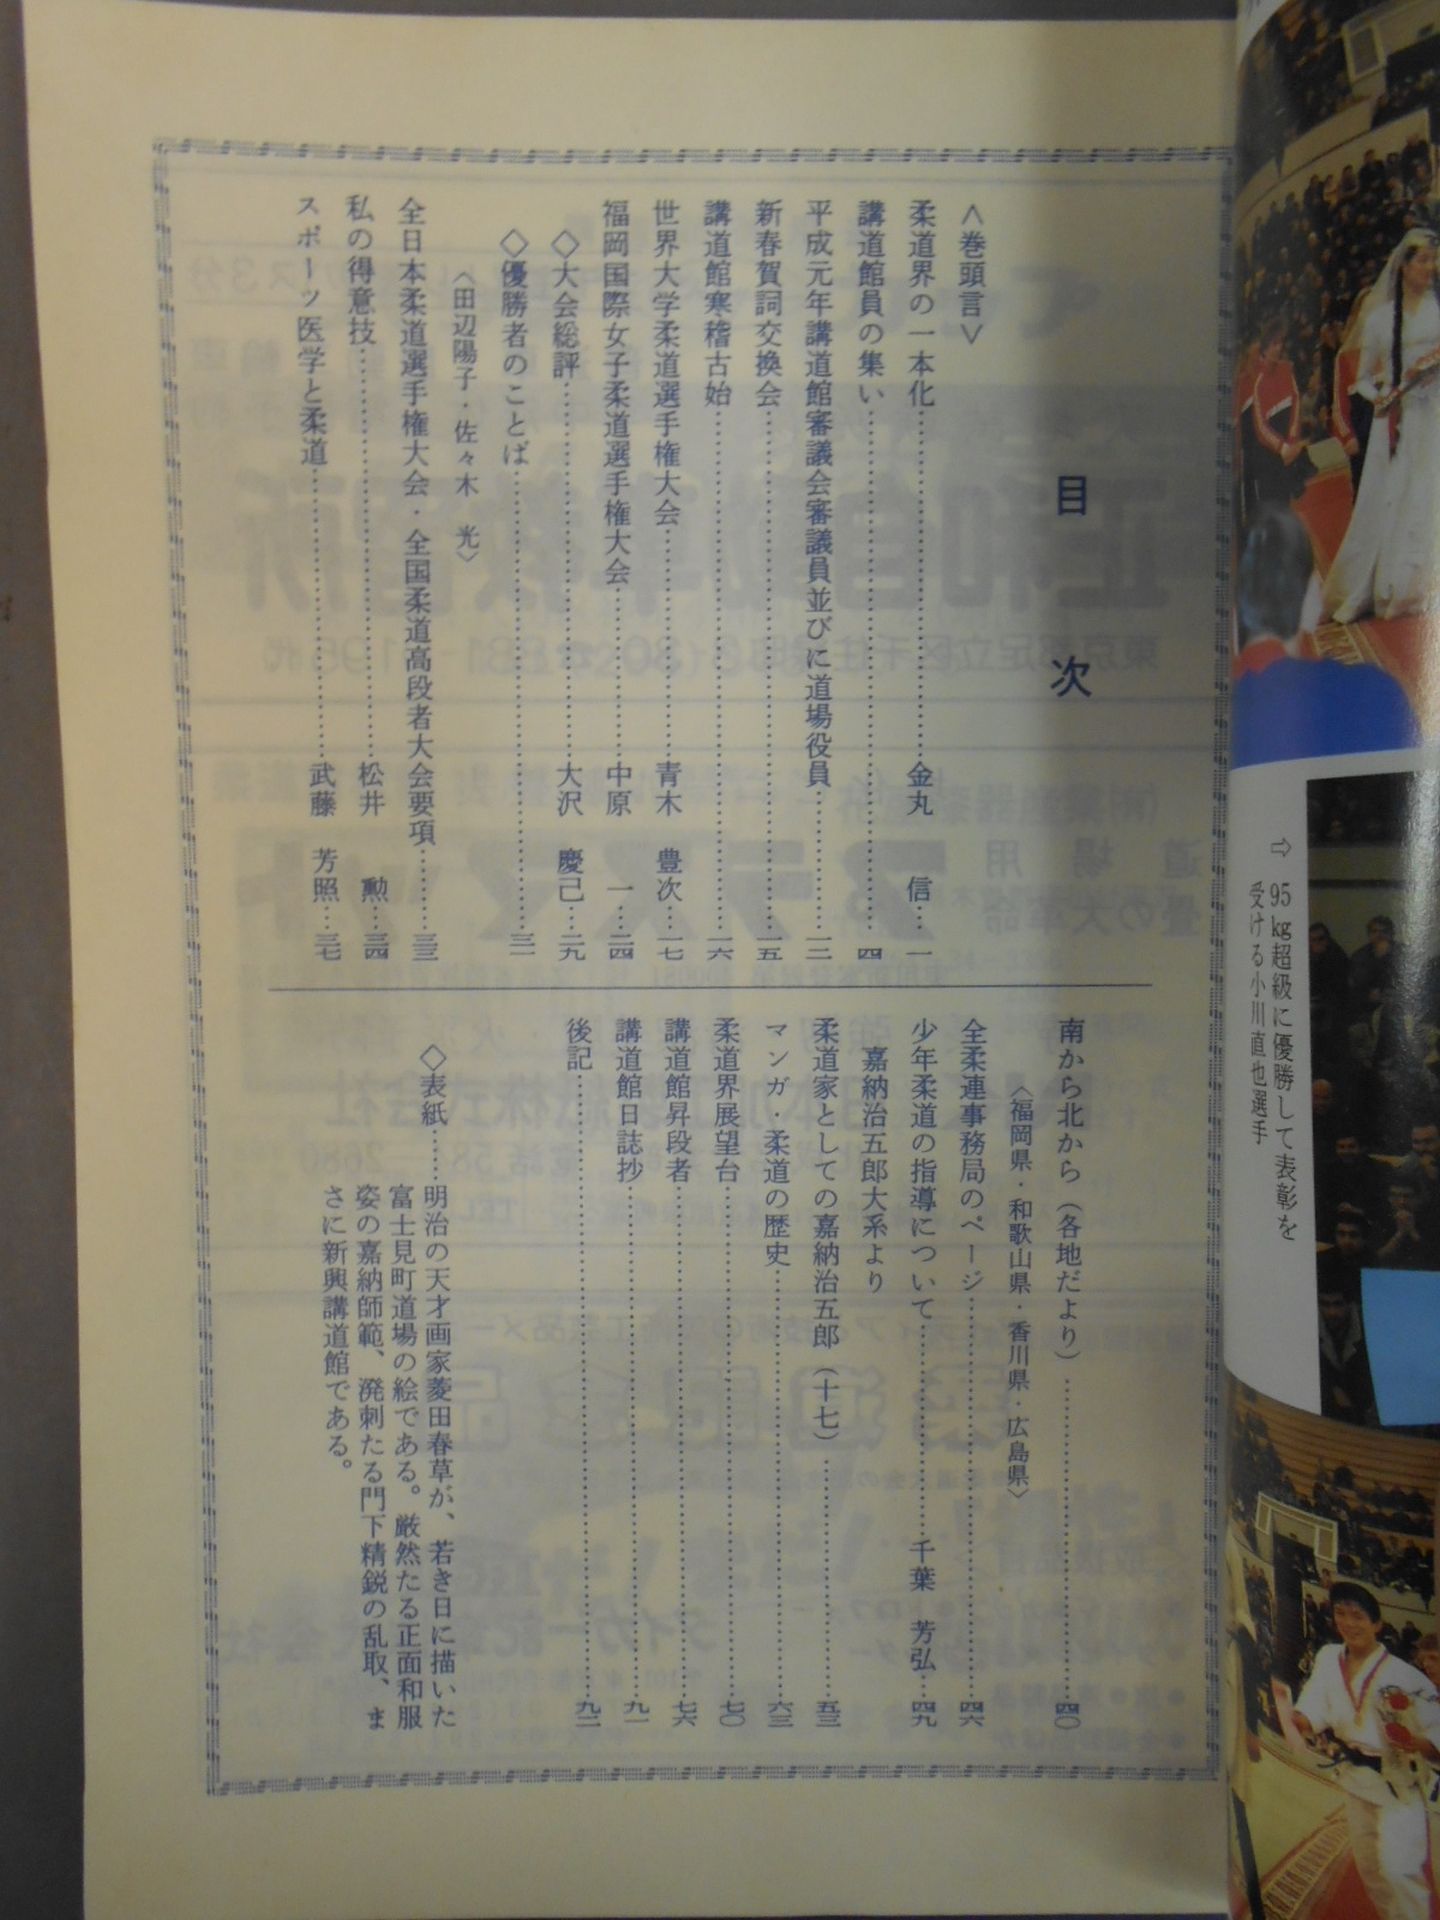 目次
＜巻頭言＞
柔道界の一本化……金丸　信…一
講道館員の集い……四
平成元年講道館審議会審議員並びに道場役員……一二
新春賀詞交換会……一五
講道館寒稽古始……一六
世界大学柔道選手権大会……青木　豊次…一七
福岡国際女子柔道選手権大会……中原　一…二四
◇大会総評……大沢　慶己…二九
◇優勝者のことば……三一
〈田辺陽子・佐々木　光〉
全日本柔道選手権大会・全国柔道高段者大会要項……三三
私の得意技……松井　勲…三四
スポーツ医学と柔道……武藤　芳照…三七
南から北から（各地だより）……四〇
〈福岡県・和歌山県・香川県・広島県〉
全柔連事務局のページ……四六
少年柔道の指導について……千葉　芳弘…四九
嘉納治五郎大系より
柔道家としての嘉納治五郎（十七）……五三
マンガ・柔道の歴史……六三
柔道界展望台……七〇
講道館昇段者……七六
講道館日誌抄……九一
後記……九二
◇表紙……明治の天才画家菱田春草が、若き日に描いた
富士見町道場の絵である。厳然たる正面和服
姿の嘉納師範、溌刺たる門下精鋭の乱取、ま
さに新興講道館である。
⇨ 95kg超級に優勝して表彰を
受ける小川直也選手